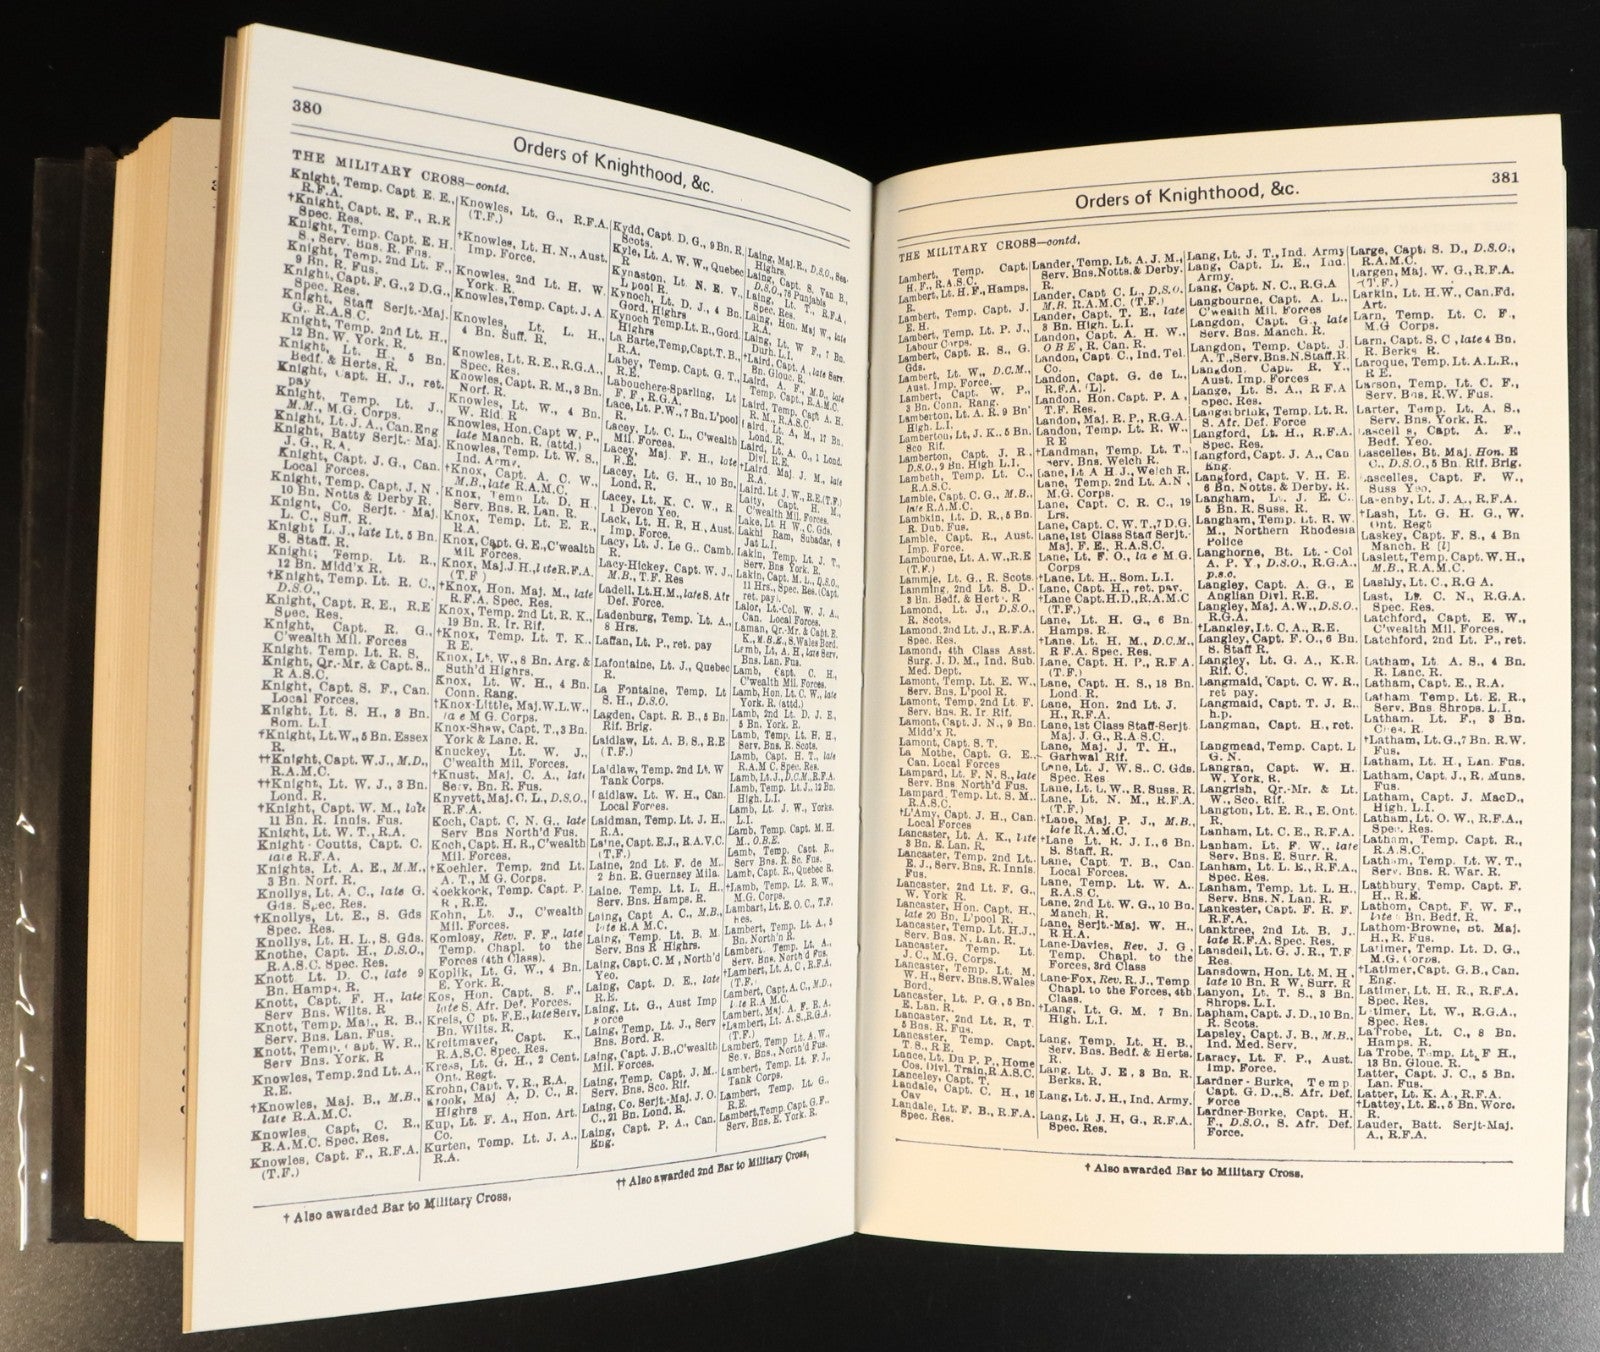 380
Orders of Knighthood, &c.
THE MILITARY CROSS—contd.
Knight, Temp. Capt E. E.,
R.F.A.
†Knight, Capt. E. F., R.E
Spec. Res.
Knight, Temp. Capt. E. H.
S., Serv. Bns. R. Fus.
Knight, Temp. 2nd Lt. F.,
9 Bn. R. Fus.
Knight, Capt. F. G., 2 D.G.,
Spec. Res.
Knight, Staff Serjt.-Maj.
G., R.A.S.C.
Knight, Temp. 2nd Lt. H.,
12 Bn. W. York. R.
Knight, Lt. H., 5 Bn.
Bedf. & Herts. R.
Knight, Capt. H. J., ret.
pay
Knight, Temp. Lt. J.,
M.M., M.G. Corps.
Knight, Lt. J. A., Can. Eng
Knight, Batty Serjt.-Maj.
J. G., R.A.
Knight, Capt. J. G., Can.
Local Forces.
Knight, Temp. Capt. J. N.,
10 Bn. Notts & Derby R.
Knight, Co. Serjt.-Maj.
L. C., Suff. R.
Knight L. J., late Lt. 5 Bn.
S. Staff. R.
Knight, Temp. Lt. R.,
12 Bn. Midd'x R.
†Knight, Temp. Lt. R. C.,
D.S.O.,
Knight, Capt. R. E., R.E
Spec. Res.
Knight, Capt. R. G.,
C'wealth Mil. Forces
Knight, Temp. Lt. R. S.
Knight, Qr.-Mr. & Capt. S.,
R.A.S.C.
Knight, Capt. S. F., Can.
Local Forces.
Knight, Lt. S. H., 3 Bn.
Som. L.I
†Knight, Lt. W., 5 Bn. Essex
R.
††Knight, Capt. W.J., M.D.,
R.A.M.C.
††Knight, Lt. W. J., 3 Bn.
Lond. R.
†Knight, Capt. W. M., late
11 Bn. R. Innis. Fus.
Knight, Lt. W. T., R.A.
Knight-Coutts, Capt. C.
late R.F.A.
Knights, Lt. A. E., M.M.,
3 Bn. Norf. R.
Knollys, Lt. A. C., late G.
Gds. Spec. Res.
†Knollys, Lt. E., S. Gds
Spec. Res.
Knollys, Lt. H. L., S. Gds.
Knothe, Capt. H., D.S.O.,
R.A.S.C. Spec. Res.
Knott, Lt. D. C., late 9
Bn. Hamps. R.
Knott, Capt. F. H., late
Serv Bns. Wilts. R
Knott, Temp. Maj., R. B.,
Serv. Bns. Lan. Fus.
Knott, Temp. Capt. W. R.,
Serv Bns. York. R
Knowles, Temp. 2nd Lt. A.,
R.E.
†Knowles, Maj. B., M.B.,
late R.A.M.C.
Knowles, Capt, C. R.,
R.A.M.C. Spec. Res.
Knowles, Capt. F., R.F.A.
(T.F.)
Knowles, Lt. G., R.F.A.
(T.F.)
†Knowles, Lt. H. N., Aust.
Imp. Force.
Knowles, 2nd Lt. H. W.
York. R.
Knowles, Temp. Capt. J. A.
Knowles, Lt. L. H.,
4 Bn. Suff. R.
Knowles, Lt. R.E., R.G.A.,
Spec. Res.
Knowles, Capt. R. M., 3 Bn.
Norf. R.
Knowles, Lt. W., 4 Bn.
W. Rid. R
Knowles, Hon. Capt W. P.,
late Manch. R. (attd.)
Knowles, Temp. Lt. W. S.,
Ind. Army.
†Knox, Capt. A. C. W.,
M.B., late R.A.M.C.
Knox, Temp Lt. D. H.
Serv. Bns. R. Lan. R.
Knox, Temp. Lt. E. R.,
R.A.
Knox, Capt. G. E., C'wealth
Mil. Forces.
Knox, Maj. J.H., late R.F.A.
(T.F)
†Knox, Hon. Maj. M., late
R.F.A. Spec. Res.
Knox, Temp. 2nd Lt. R. K.,
19 Bn. R. Ir. Rif.
†Knox, Temp. Lt. T. K.,
R E.
Knox, Lt. W., 8 Bn. Arg. &
Suth'd Highrs.
Knox, Lt. W. H., 4 Bn.
Conn. Rang.
†Knox-Little, Maj. W.L.W.,
late M G. Corps.
Knox-Shaw, Capt. T., 3 Bn.
York & Lanc. R.
Knuckey, Lt. W. J.,
C'wealth Mil. Forces.
†Knust, Maj. C. A., late
Serv. Bn. R. Fus.
Knyvett, Maj. C. L., D.S.O.,
R.F.A.
Koch, Capt. C. N. G., late
Serv Bns North'd Fus.
Koch, Capt. H. R., C'wealth
Mil. Forces.
†Koehler, Temp. 2nd Lt.
A. T., M G. Corps.
Koekkoek, Temp. Capt. P.
R., R.E.
Kohn, Lt. J., C'wealth
Mil. Forces.
Komlosy, Rev. F. F., late
Temp. Chapl. to the
Forces (4th Class).
Koplik, Lt. G. W., 4 Bn.
E. York. R.
Kos, Hon. Capt. S. F.,
late S. Afr. Def. Forces.
Kreis, Capt. F.E., late Serv.
Bn. Wilts. R.
Kreitmayer, Capt. K.,
R.A.S.C. Spec. Res.
Kress, Lt. G. H., 2 Cent.
Ont. Regt.
Krohn, Capt. V. R., R.A.
Krook, Maj A. D. C., R.
Highrs
Kup, Lt. F. A., Hon. Art.
Co.
Kurten, Temp. Lt. J. A.,
R.A.
Kydd, Capt. D. G., 9 Bn. R.
Scots.
Kyle, Lt. A. W. W., Quebec
R
Kynaston, Lt. N. E. V.,
L'pool R.
Kynoch, Lt. D. J., 4 Bn.
Gord. Highrs
Kynoch Temp. Lt. R., Gord.
Highrs
La Barte, Temp, Capt. T. B.,
R.A.
Labey, Temp. Capt. G. T.,
R.E.
Labouchere-Sparling, Lt
F. F., R.G.A.
Lace, Lt. P.W., 7 Bn. L'pool
R.
Lacey, Lt. C. L., C'wealth
Mil. Forces.
Lacey, Maj. F. H., late
R.E.
Lacey, Lt. G. H., 10 Bn.
Lond. R.
Lacey, Lt. K. C. W., R.
1 Devon Yeo.
Lack, Lt. H. R, H, Aust.
Imp. Force.
Lacy, Lt. J. Le G.. Camb.
R.
Lacy-Hickey, Capt. W. J.,
M.B., T.F. Res
Ladell, Lt.H.M., late S. Afr
Def. Force.
Ladenburg, Temp. Lt. A.,
8 Hrs.
Laffan, Lt. P., ret. pay
Lafontaine, Lt. J., Quebec
R.
La Fontaine, Temp. Lt
S. H., D.S.O.
Lagden, Capt. R. B., 5 Bn.
Rif. Brig.
Laidlaw, Lt. A. B. S., R.E
(T.F.)
Laidlaw, Temp. 2nd Lt. W
Tank Corps.
Laidlaw, Lt. W. H., Can.
Local Forces.
Laidman, Temp. Lt. J. H.,
R.A.
Laine, Capt. E.J., R.A.V.C.
(T.F.)
Laine, 2nd Lt. F. de M.,
2 bn. R. Guernsey Mila.
Laine. Temp. Lt. L. H.,
Serv. Bns. Hamps. R.
Laing, Capt A. C., M.B.,
late R.A M.C.
Laing, Temp. Lt. B. M
Serv. Bns R Highrs.
Laing, Capt. C. M., North'd
Yeo.
Laing, Capt. D. E., late
R.E.
Laing, Lt. G., Aust Imp
Force
Laing, Temp. Lt. J., Serv
Bns. Bord. R.
Laing, Capt. J.B., C'wealth
Mil. Forces.
Laing, Temp. Capt. J. M.,
Serv. Bns. Sco. Rif.
Laing, Co. Serjt.-Maj. J. O.
C., 21 Bn. Lond. R.
Laing, Capt. P. A., Can.
Eng.
Laing, Maj. R., D.S.O., Sea.
Highrs.
Laing, Capt. S. Van B.,
D.S.O., 76 Punjabis
Laing, Lt. T., R.F.A.,
Spec. Res.
Laing, Hon. Maj W., late
R.A.
Laing, Lt. W F., 7 Bn.
Durh. L.I.
†Laird, Capt. A., late Serv.
Bn. Glouc. R.
Laird, A. F., M.D., late
Temp. Capt., R.A.M.C.
Laird, Temp. Capt. A. H.
R. M., R.A.S.C.
Laird, Lt. A. M., 17 Bn.
Lond. R.
Laird, Lt. A. O., 1 Lond.
Divl. R.E.
†Laird Maj. J. M., late
R.A.
Laird, Lt J. W., R.E. (T.F.)
Laity, Capt. H. M.,
C'wealth Mil. Forces.
Lake, Lt. H W., C. Gds.
Lakhi Ram, Subadar, 6
Jat L.I.
Lakin, Temp. Lt. J. T.,
Serv. Bns York. R.
Lakin, Capt. M. L., D.S.O.,
11 Hrs., Spec. Res. (Capt.
ret. pay).
Lalor, Lt.-Col. W. J. A.,
Can. Local Forces.
Laman, Qr.-Mr. & Capt. E.
K., M.B.E., S. Wales Bord.
Lamb, Lt. A. H., late Serv.
Bns. Lan. Fus.
Lamb, Capt. C. H.,
C'wealth Mil. Forces.
Lamb, Hon. Lt. C. W., late
York. R. (attd.)
Lamb, 2nd Lt. D. J. E.,
5 Bn. York. R.
Lamb, Temp. Lt. H. H.,
Serv. Bns. R. Scots.
Lamb, Capt. H. T., late
R.A.M C Spec. Res.
Lamb, Lt. J., D.C.M., R.F.A.
Lamb, Temp. Lt. J., 12 Bn.
High. L.I.
Lamb, Lt. J. W., Yorks.
L.I.
Lamb, Temp. Capt. M. H.
M., O.B.E.
Lamb, Temp. Capt. R.,
Serv Bns. R. Sc. Fus.
Lamb, Capt. R., Quebec R.
†Lamb, Temp. Lt. R. W.,
M.G. Corps.
Lambart, Lt. E. O. C., T.F.
Res.
Lambert, Temp. Lt. A., 5
Bn. North'n R.
Lambert Temp. Lt. A.,
Serv. Bns. North'd Fus.
†Lambert, Lt. A. C., R.F.A.
(T.F.
Lambert, Capt. A. C., M.D.,
late R.A M.C.
Lambert, Maj. A. F., R.A.
†Lambert, Lt. A. S., R.G.A.
(T.F.)
Lambert, Temp. Lt. A. W.,
Serv. Bns., North'd Fus.
Lambert, Temp. Lt. F. J.,
Tank Corps.
Lambert, Temp. Lt. G.,
R.E.
Lambert, Temp. Capt. G. F.,
Serv. Bns. E. York. R.
† Also awarded Bar to Military Cross.
†† Also awarded 2nd Bar to Military Cross.
381
Orders of Knighthood, &c.
THE MILITARY CROSS—contd.
Lambert, Temp. Capt.
H. F., R.A.S.C.
Lambert, Lt. H. F., Hamps.
R.
Lambert, Temp. Capt. J.
E. H.
Lambert, Temp. Lt. P. J.,
Labour Corps.
Lambert, Capt. R. S., G.
Gds.
Lambert, Lt. W., D.C.M.,
Aust. Imp. Force.
Lambert, Capt. W. P.,
3 Bn. Conn. Rang.
Lamberton, Lt. A. R. 9 Bn
High. L.I.
Lamberton, Lt, J. K.. 5 Bn.
Sco Rif.
Lamberton, Capt. J. R.,
D.S.O., 9 Bn. High L.I.
Lambeth, Temp. Lt. C.,
R.A.S.C.
Lambie, Capt. C. G., M.B.,
late R.A.M.C.
Lambkin, Lt. D. R., 5 Bn.
R. Dub. Fus.
Lamble, Capt. R., Aust.
Imp. Force.
Lambourne, Lt. A.W., R.E
(T.F.)
Lammie, Lt. G., R. Scots.
Lamming, 2nd Lt. S. D.,
3 Bn. Bedf. & Herts. R
Lamond, Lt. J., D.S.O.,
R. Scots.
Lamond, 2nd Lt. J., R.F.A.
Spec. Res.
Lamond, 4th Class Asst.
Surg. J. D. M., Ind. Sub.
Med. Dept.
Lamont, Temp. Lt. E. W.,
Serv. Bns. L'pool R.
Lamont, Temp. 2nd Lt. F.
Serv. Bns. R. Ir. Rif.
Lamont, Capt. J. N., 9 Bn.
Midd'x R.
Lamont, Capt. S. T.
La Mothe, Capt. G. E.,
Can. Local Forces
Lampard, Lt. F. N. S., late
Serv. Bns North'd Fus.
Lampard, Temp. Lt. S. M.,
R.A.S.C.
†L'Amy, Capt. J. H., Can.
Local Forces
Lancaster, Lt. A. K., late
3 Bn. E. Lan. R.
Lancaster, Temp. 2nd Lt.
E. J., Serv. Bns. R. Innis.
Fus.
Lancaster, 2nd Lt. F. G.,
W. York R.
Lancaster, Hon. Capt. H.,
late 20 Bn. L'pool R.
Lancaster, Temp. Lt. H.J.,
Serv. Bns. N. Lan. R.
Lancaster, Temp. Lt.
J. C., M.G. Corps.
Lancaster, Temp. Lt. M.
W. H., Serv. Bns. S. Wales
Bord.
Lancaster, Lt. P. G., 5 Bn.
E. Lan. R.
Lancaster, 2nd Lt. R, T.
5 Bns. R. Fus.
Lancaster, Temp. Capt.
T. S., R E.
Lance, Lt. Du P. P., Home
Cos. Divl. Train, R.A.S.C.
Lanceley, Capt. T.
Landale, Capt. C. H., 16
Cav
Landale, Lt. F. B., R.F.A.
Spec. Res.
Lander, Temp. Lt. A. J. M.,
Serv. Bns. Notts. & Derby.
R.
Lander, Capt C. L., D.S.O.
M.B. R.A.M.C. (T.F.)
Lander, Capt. T. E., late
3 Bn. High. L.I.
Landon, Capt. A. H. W.,
O B E, R. Can. R.
Landon, Capt. C., Ind. Tel.
Co.
Landon, Capt. G. de L.,
R.F.A. (L).
Landon, Hon. Capt. P. A.,
T.F. Res.
Landon, Maj. R. P., R.G.A.
Landon, Temp. Lt. R. W.,
R E
†Landman, Temp. Lt. T.,
Serv. Bns. Welch R.
Lane, Lt A H J., Welch R.
Lane, Temp. 2nd Lt. A.N.,
M.G. Corps.
Lane, Capt. C. R. C., 19
Lrs.
Lane, Capt. C. W. T., 7 D.G.
Lane, 1st Class Staff Serjt.-
Maj. F. E., R.A.S.C.
Lane, Lt. F. O., late M G.
Corps
†Lane, Lt. H.. Som. L.I.
Lane, Capt. H., ret. pay.
†Lane Capt. H.D., R.A.M.C
(T.F.)
Lane, Lt. H. G., 6 Bn.
Hamps. R.
†Lane, Lt. H. M., D.C.M.,
R F.A. Spec. Res.
Lane, Capt. H. P., R.F A
(T.F.)
Lane, Capt. H. S., 18 Bn.
Lond. R.
Lane, Hon. 2nd Lt. J.
H., R.F.A.
Lane, 1st Class Staff-Serjt
Maj. J. G., R.A.S.C.
Lane, Maj. J. T. H.,
Garhwal Rif.
Lane, Lt. J. W. S.. C. Gds.
Spec. Res.
Lane, Lt. L. W., R. Suss. R.
Lane, Lt. N. M., R.F.A.
(T.F.)
†Lane, Maj. P. J., M.B.,
late R.A.M.C.
†Lane Lt. R. J. I., 6 Bn.
S. Staff. R.
Lane, Capt. T. B., Can.
Local Forces.
Lane, Temp. Lt. W. A.,
R.A.S C.
Lane, 2nd Lt. W. G., 10 Bn.
Manch. R.
Lane, Serjt.-Maj. W. H.,
R H.A.
Lane-Davies, Rev. J. G.,
Temp. Chapl. to the
Forces, 3rd Class
Lane-Fox, Rev. R. J., Temp
Chapl. to the Forces, 4th
Class.
†Lang, Lt. G. M. 7 Bn.
High. L.I.
Lang, Temp. Lt. H. B.,
Serv. Bns. Bedf. & Herts.
R.
Lang. Lt. J. E, 3 Bn. R.
Berks. R.
Lang, Lt. J. H., Ind. Army.
Lang, Lt J. H, G., R.F.A.
Spec. Res.
Lang, Lt. J. T., Ind. Army
Lang, Capt. L. E., Ind.
Army.
Lang, Capt. N. C., R.G.A
Langbourne, Capt. A. L.,
C'wealth Mil. Forces
Langdon, Capt. G., late
Serv. Bns. Manch. R.
Langdon, Temp. Capt. J.
A. T., Serv. Bns. N. Staff. R.
Langdon. Capt. R. Y.,
Aust. Imp. Forces
Lange, Lt. S. A., R.F.A
Spec. Res.
Langebrink, Temp. Lt. R.
S. Afr. Def. Force
Langford, Lt. H., R.F.A.
Spec. Res.
Langford, Capt. J. A., Can
Eng.
Langford, Capt. V. H. E.
6 Bn. Notts. & Derby. R.
Langham, Lt. J. E. C.,
5 Bn. R. Suss. R.
Langham, Temp. Lt. R. W.
M., Northern Rhodesia
Police
Langhorne, Bt. Lt.-Col
A. P. Y., D.S.O., R.G.A.,
p.s.c.
Langley, Capt. A. G., E
Anglian Divl. R.E.
Langley, Maj. A.W., D.S.O.,
R.G.A.
†Langley, Lt. C. A., R.E.
Langley, Capt. F. O., 6 Bn.
S. Staff R.
Langley, Lt. G. A., K.R.
Rif. C.
Langmaid, Capt. C. W. R.,
ret pay.
Langmaid, Capt. T. J. R.,
h.p.
Langman, Capt. H., ret.
Langmead, Temp. Capt. L
G. N.
Langran, Capt. W H.
W. York. R.
Langrish, Qr.-Mr. & Lt.
W., Sco. Rif.
Langton, Lt. E. R., E. Ont.
R.
Lanham, Lt. C. E., R.F.A.
Lanham, Lt. F. W., late
Serv. Bns. E. Surr. R.
Lanham, Lt. L. E., R.F.A.,
Spec. Res.
Lanham, Temp. Lt. L. H.,
Serv. Bns. N. Lan. R.
Lankester, Capt. F. R. F.
R.F.A.
Lanktree, 2nd Lt. B. J..
late R.F.A. Spec. Res.
Lansdell, Lt. G. J. R., T.F
Res.
Lansdown, Hon. Lt. M. H.,
late 10 Bn. R W. Surr. R
Lanyon, Lt. T. S., 3 Bn.
Shrops. L.I.
Lapham, Capt. J. D., 10 Bn.
R. Scots.
Lapsley, Capt. J. B., M.B.,
Ind. Med. Serv.
Laracy, Lt. F. P., Aust.
Imp. Force.
Lardner-Burke, Temp
Capt. G. D., S. Afr. Def.
Force
Lardner-Burke, Capt. H.
F., D.S.O., S. Afr. Def.
Force.
Large, Capt. S. D., D.S.O.,
R.A.M.C.
Largen, Maj. W. G., R.F.A.
(T.F.)
Larkin, Lt. H.W., Can. Fd.
Art.
Larn, Temp. Lt. C. F.,
M.G Corps.
Larn, Capt. S. C, late 4 Bn.
R. Berks R.
Laroque, Temp. Lt. A.L.R.,
R E.
Larson, Temp. Lt. C. F.,
Serv. Bns. R.W. Fus.
Larter, Temp. Lt. A. S.,
Serv. Bns. York. R.
Lascelles, Capt. A. F.,
Bedf. Yeo.
Lascelles, Bt. Maj. Hon. E
C., D.S.O., 5 Bn. Rif. Brig.
Lascelles, Capt. F. W.,
Suss Yeo.
Lasenby, Lt. J. A., R.F.A.
†Lash, Lt. G. H. G., W.
Ont. Regt
Laskey, Capt. F. S., 4 Bn
Manch. R [l]
Laslett, Temp. Capt. W. H.,
M.B., R.A.M.C.
Lashly, Lt. C., R.G A.
Last, Lt. C. N., R.G.A.
Spec. Res.
Latchford, Capt. E. W.,
C'wealth Mil. Forces.
Latchford, 2nd Lt. P., ret.
Latham, Lt. A. S., 4 Bn.
R. Lanc. R.
Latham, Capt. E., R.A.
Latham, Temp. Lt. E. R.,
Serv. Bns. Shrops. L.I.
Latham, Lt. F., 3 Bn.
Ches. R.
†Latham, Lt. G., 7 Bn. R.W.
Fus.
Latham, Lt. H., Lan. Fus.
Latham, Capt. J., R. Muns.
Fus.
Latham, Capt. J. MacD.,
High. L.I.
Latham, Lt. O. W., R.F.A.,
Spec. Res.
Latham, Temp. Capt. R.,
R.A.S.C.
Latham, Temp. Lt. W. T.,
Serv. Bns. R. War. R.
Lathbury, Temp. Capt. F.
H., R.E.
Lathom, Capt. F. W. F.,
late Bn. Bedf. R.
Lathom-Browne, Bt. Maj.
H., R. Fus.
Latimer, Temp. Lt. D. G.,
M.G. Corps.
†Latimer, Capt. G.B., Can.
Eng.
Latimer, Lt. H. R., R.F.A.
Spec. Res.
Latimer, Lt. W., R.G.A.,
Spec. Res.
LaTrobe, Lt. C., 8 Bn.
Hamps. R.
La Trobe, Temp. Lt. F H.,
13 Bn. Glouc. R.
Latter, Capt. J. C., 5 Bn.
Lan. Fus.
Latter, Lt. K. A., R.F.A.
†Lattey, Lt. E., 5 Bn. Worc.
R.
Lauder, Batt. Serjt-Maj.
A., R.F.A.
† Also awarded Bar to Military Cross.